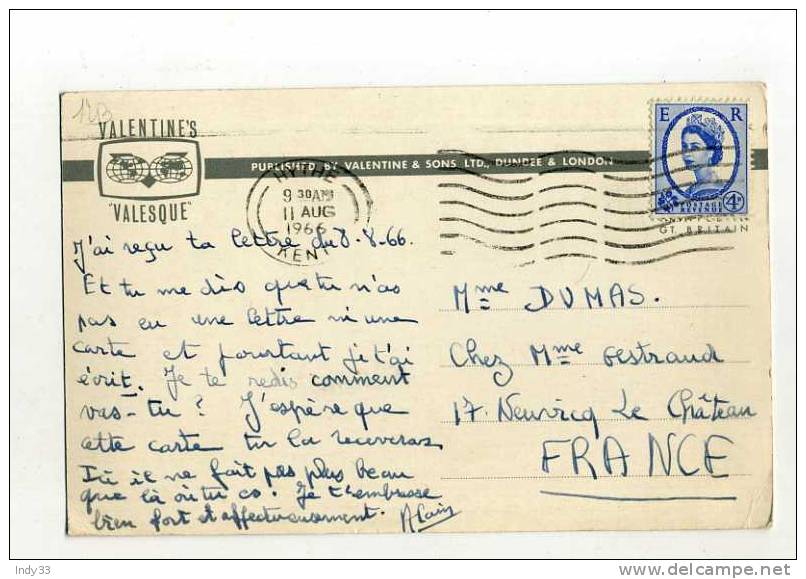 123
VALENTINE'S
"VALESQUE"
PUBLISHED BY VALENTINE & SONS LTD., DUNDEE & LONDON
HYTHE
9 30AM
11 AUG
1966
KENT
E R
POSTAGE
REVENUE
4D
GT. BRITAIN
J'ai reçu ta lettre du 8-8-66.
Et tu me dis que tu n'as
pas eu une lettre ni une
carte et pourtant je t'ai
écrit. Je te redis comment
vas-tu ? J'espère que
cette carte tu la receveras
Ici il ne fait pas plus beau
que là où tu es. Je t'embrasse
bien fort et affectueusement. Alain
Mme DUMAS.
Chez Mme Gestraud
17. Neuvicq Le Château
FRANCE
Indy33
www.delcampe.net